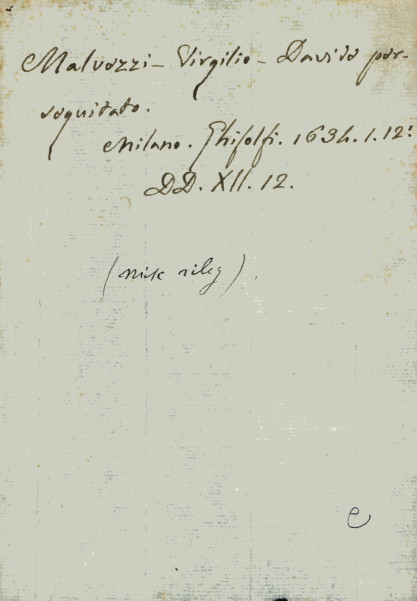 Malvezzi - Virgilio - Davide per-
seguitato.
Milano. Ghisolfi. 1634. 1. 12:
DD. XII. 12.
(misc rileg).
e